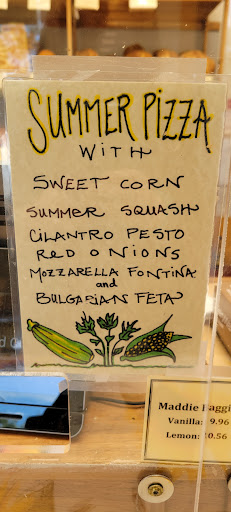 SUMMER PIZZA
WITH
SWEET CORN
SUMMER SQUASH
CILANTRO PESTO
RED ONIONS
MOZZARELLA FONTINA
and
BULGARIAN FETA
Maddie Baggi
Vanilla: 9.96
Lemon: 0.56